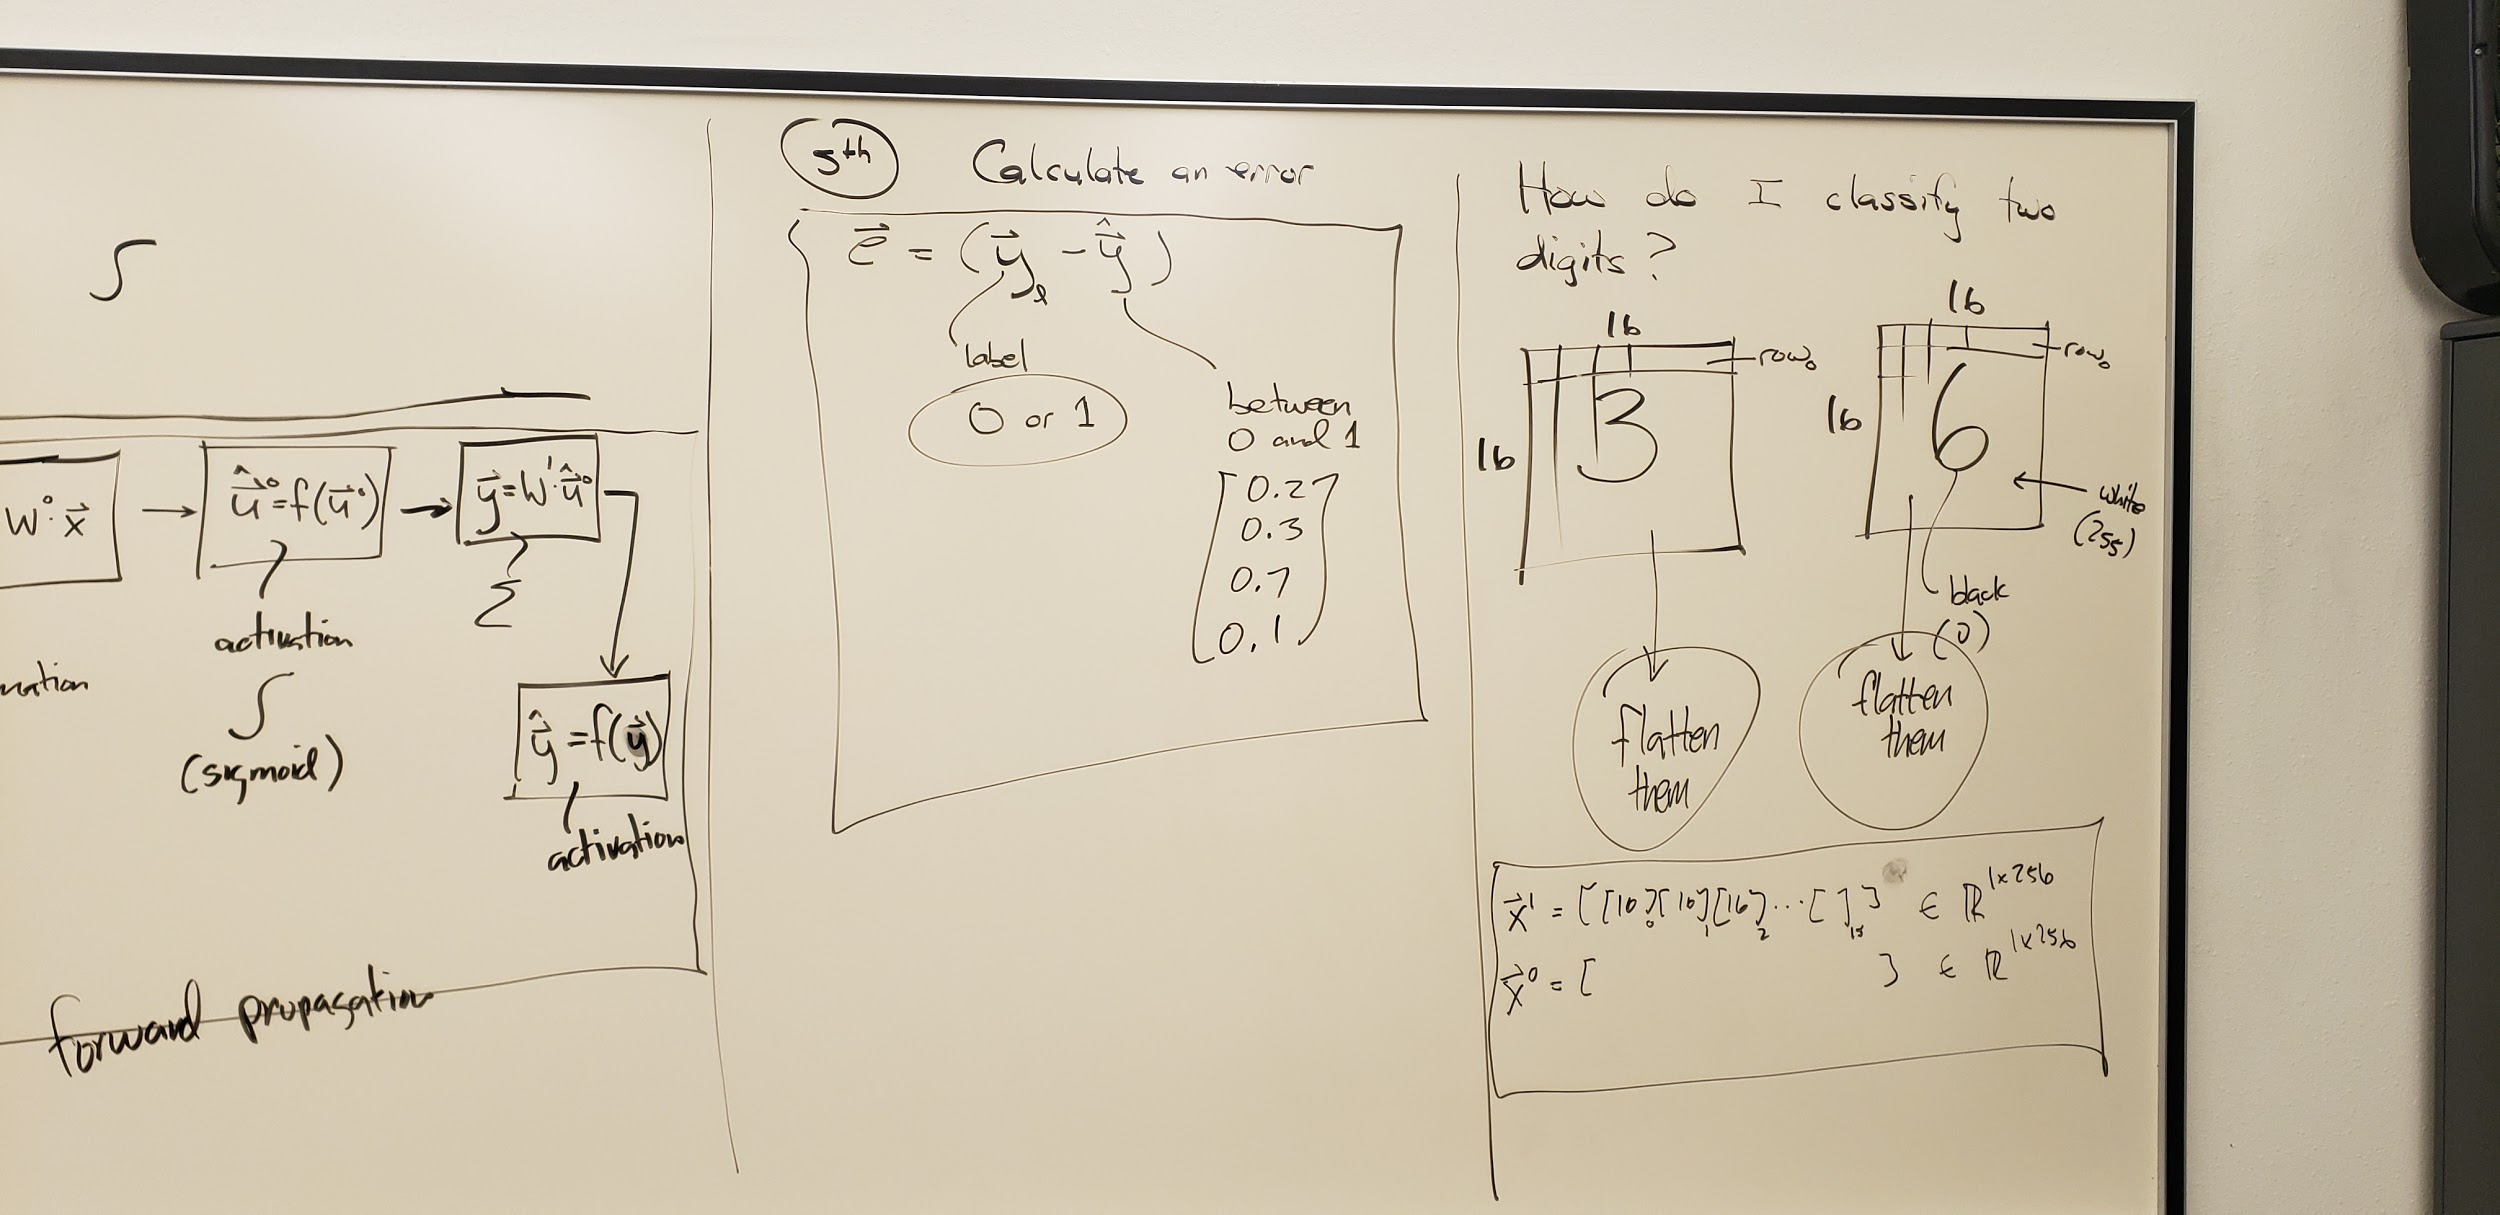 ∫
W⁰·x⃗
û⃗⁰=f(u⃗⁰)
y⃗=W¹·û⃗⁰
Σ
activation
∫
(sigmoid)
ŷ⃗=f(y⃗)
activation
forward propagation
5th
Calculate an error
e⃗ = (y⃗ℓ - ŷ⃗)
label
0 or 1
between
0 and 1
0.2
0.3
0.7
0.1
How do I classify two
digits?
16
16
row₀
3
16
16
row₀
6
white
(255)
black
(0)
flatten
them
flatten
them
x⃗¹ = [[16]₀[16]₁[16]₂...[ ]₁₅] ∈ ℝ¹ˣ²⁵⁶
x⃗⁰ = [ ] ∈ ℝ¹ˣ²⁵⁶